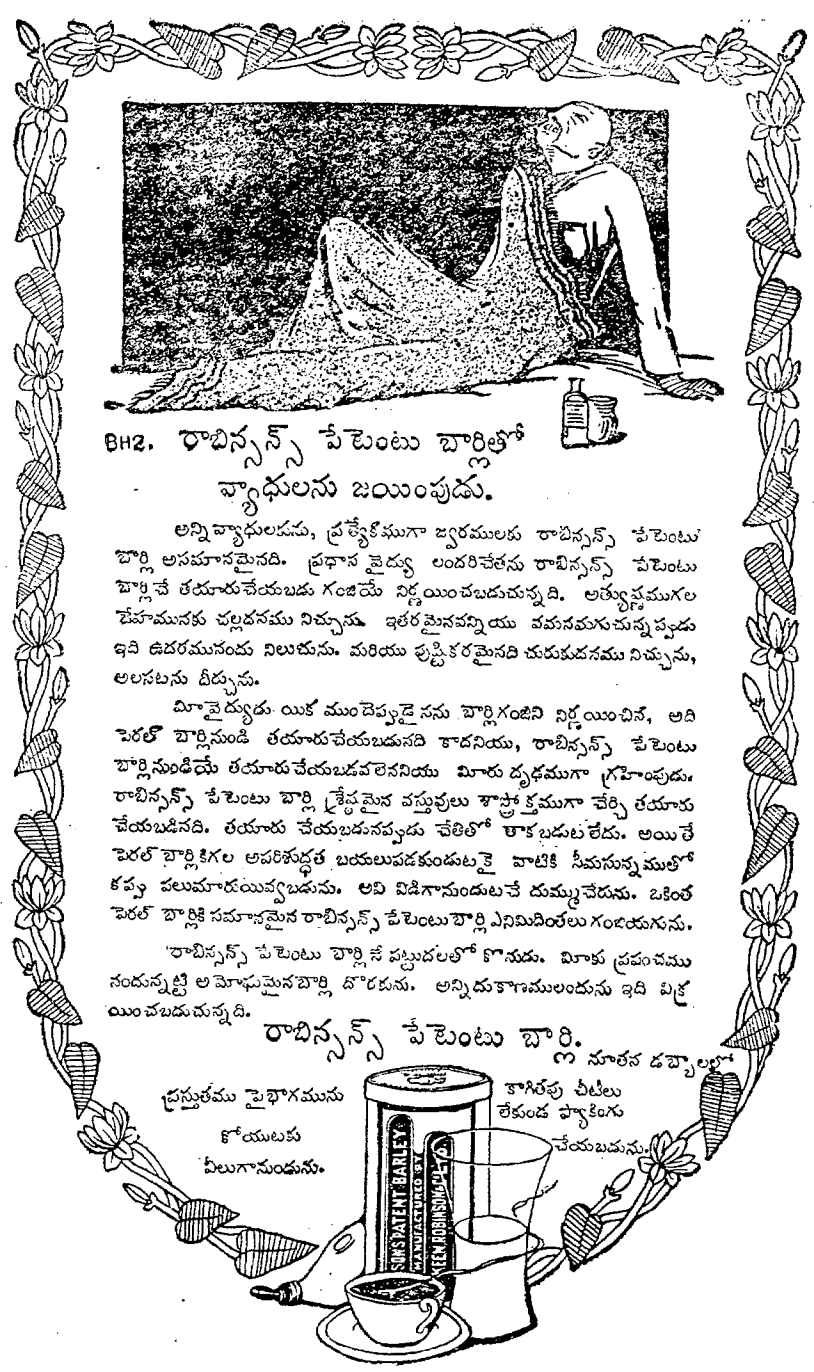 BH2. రాబిన్సన్స్ పేటెంటు బార్లితో
వ్యాధులను జయింపుడు.
అన్ని వ్యాధులకును, ప్రత్యేకముగా జ్వరములకు రాబిన్సన్స్ పేటెంటు
బార్లి అసమానమైనది. ప్రధాన వైద్యు లందరిచేతను రాబిన్సన్స్ పేటెంటు
బార్లిచే తయారుచేయబడు గంజియే నిర్ణయించబడుచున్నది. అత్యుష్ణముగల
దేహమునకు చల్లదనము నిచ్చును. ఇతరమైనవన్నియు వమనమగుచున్నప్పుడు
ఇది ఉదరమునందు నిలుచును. మరియు పుష్టికరమైనది చురుకుదనము నిచ్చును,
అలసటను దీర్చును.
మీవైద్యుడు యిక ముందెప్పుడైనను బార్లిగంజిని నిర్ణయించినే, అది
పెరల్ బార్లినుండి తయారుచేయబడునది కాదనియు, రాబిన్సన్స్ పేటెంటు
బార్లినుండియే తయారుచేయబడవలెననియు మీరు దృఢముగా గ్రహింపుడు.
రాబిన్సన్స్ పేటెంటు బార్లి శ్రేష్ఠమైన వస్తువులు శాస్త్రోక్తముగా చేర్చి తయారు
చేయబడినది. తయారు చేయబడునప్పుడు చేతితో తాకబడుట లేదు. అయితే
పెరల్ బార్లికిగల అపరిశుద్ధత బయలుపడకుండుటకై వాటికి సీమసున్నముతో
కప్పు పలుమారుయివ్వబడును. అవి విడిగానుండుటచే దుమ్ముచేరును. ఒకింత
పెరల్ బార్లికి సమానమైన రాబిన్సన్స్ పేటెంటుబార్లి ఎనిమిదింతలు గంజియగును.
రాబిన్సన్స్ పేటెంటు బార్లినే పట్టుదలతో కొనుడు. మీకు ప్రపంచము
నందున్నట్టి అమోఘమైనబార్లి దొరకును. అన్నిదుకాణములందును ఇది విక్ర
యించబడుచున్నది.
రాబిన్సన్స్ పేటెంటు బార్లి.
నూతన డబ్బాలలో
ప్రస్తుతము పైభాగమును
కోయుటకు
వీలుగానుండును.
కాగితపు చీటీలు
లేకుండ ప్యాకింగు
చేయబడును.
SON'S PATENT BARLEY
MANUFACTURED BY
KEEN, ROBINSON & CO